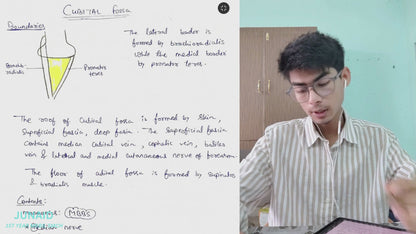 CUBITAL fossa
Boundaries
The lateral border is
formed by brachioradialis
while the medial border
by pronator teres.
Brachio-
radialis
Pronator
teres
The roof of Cubital fossa is formed by skin,
superficial fascia, deep fascia. The superficial fascia
contains median cubital vein, cephalic vein, basilic
vein & lateral and medial cutaneous nerve of forearm.
The floor of cubital fossa is formed by supinator
& brachialis muscle.
Contents:
MBBS
JUNAID
1ST YEAR
median nerve